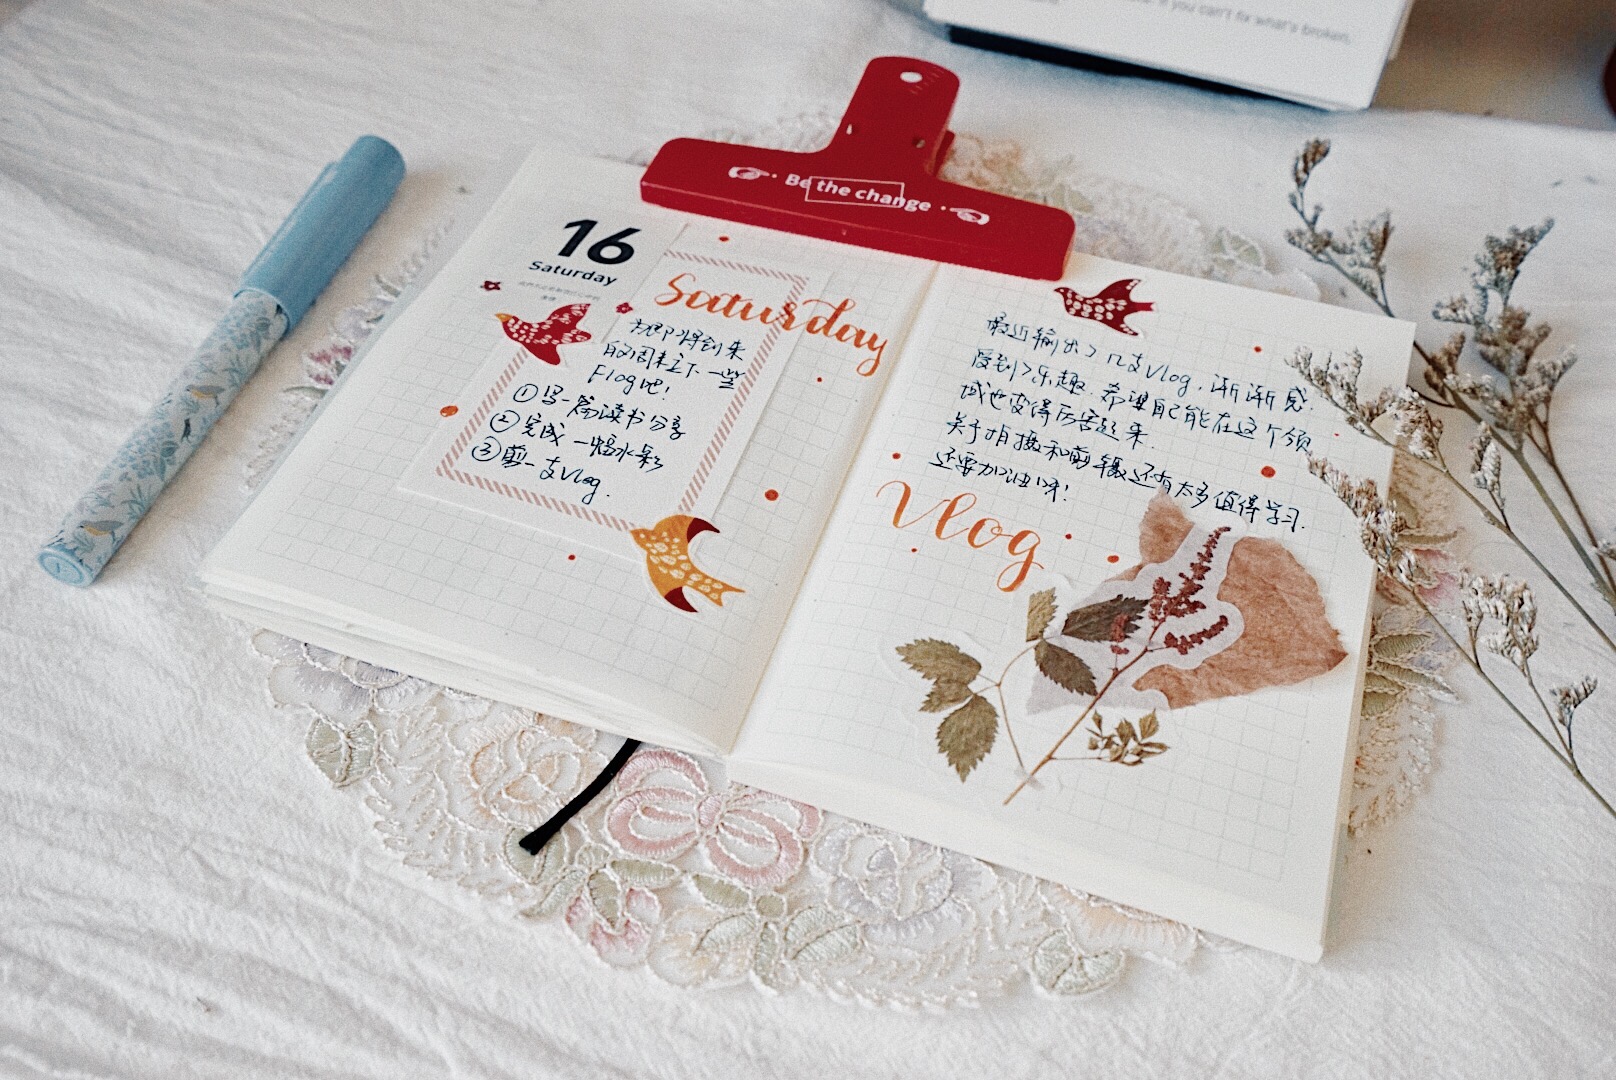 if you can't fix what's broken.
Be the change
16
Saturday
Saturday
为即将到来
的周末立下一些
Flog吧!
①写一篇读书分享
②完成一幅水彩
③剪一支Vlog.
最近输出了几支Vlog,渐渐感
受到了乐趣.希望自己能在这个领
域也变得厉害起来.
关于拍摄和剪辑还有太多值得学习.
还要加油呀!
Vlog